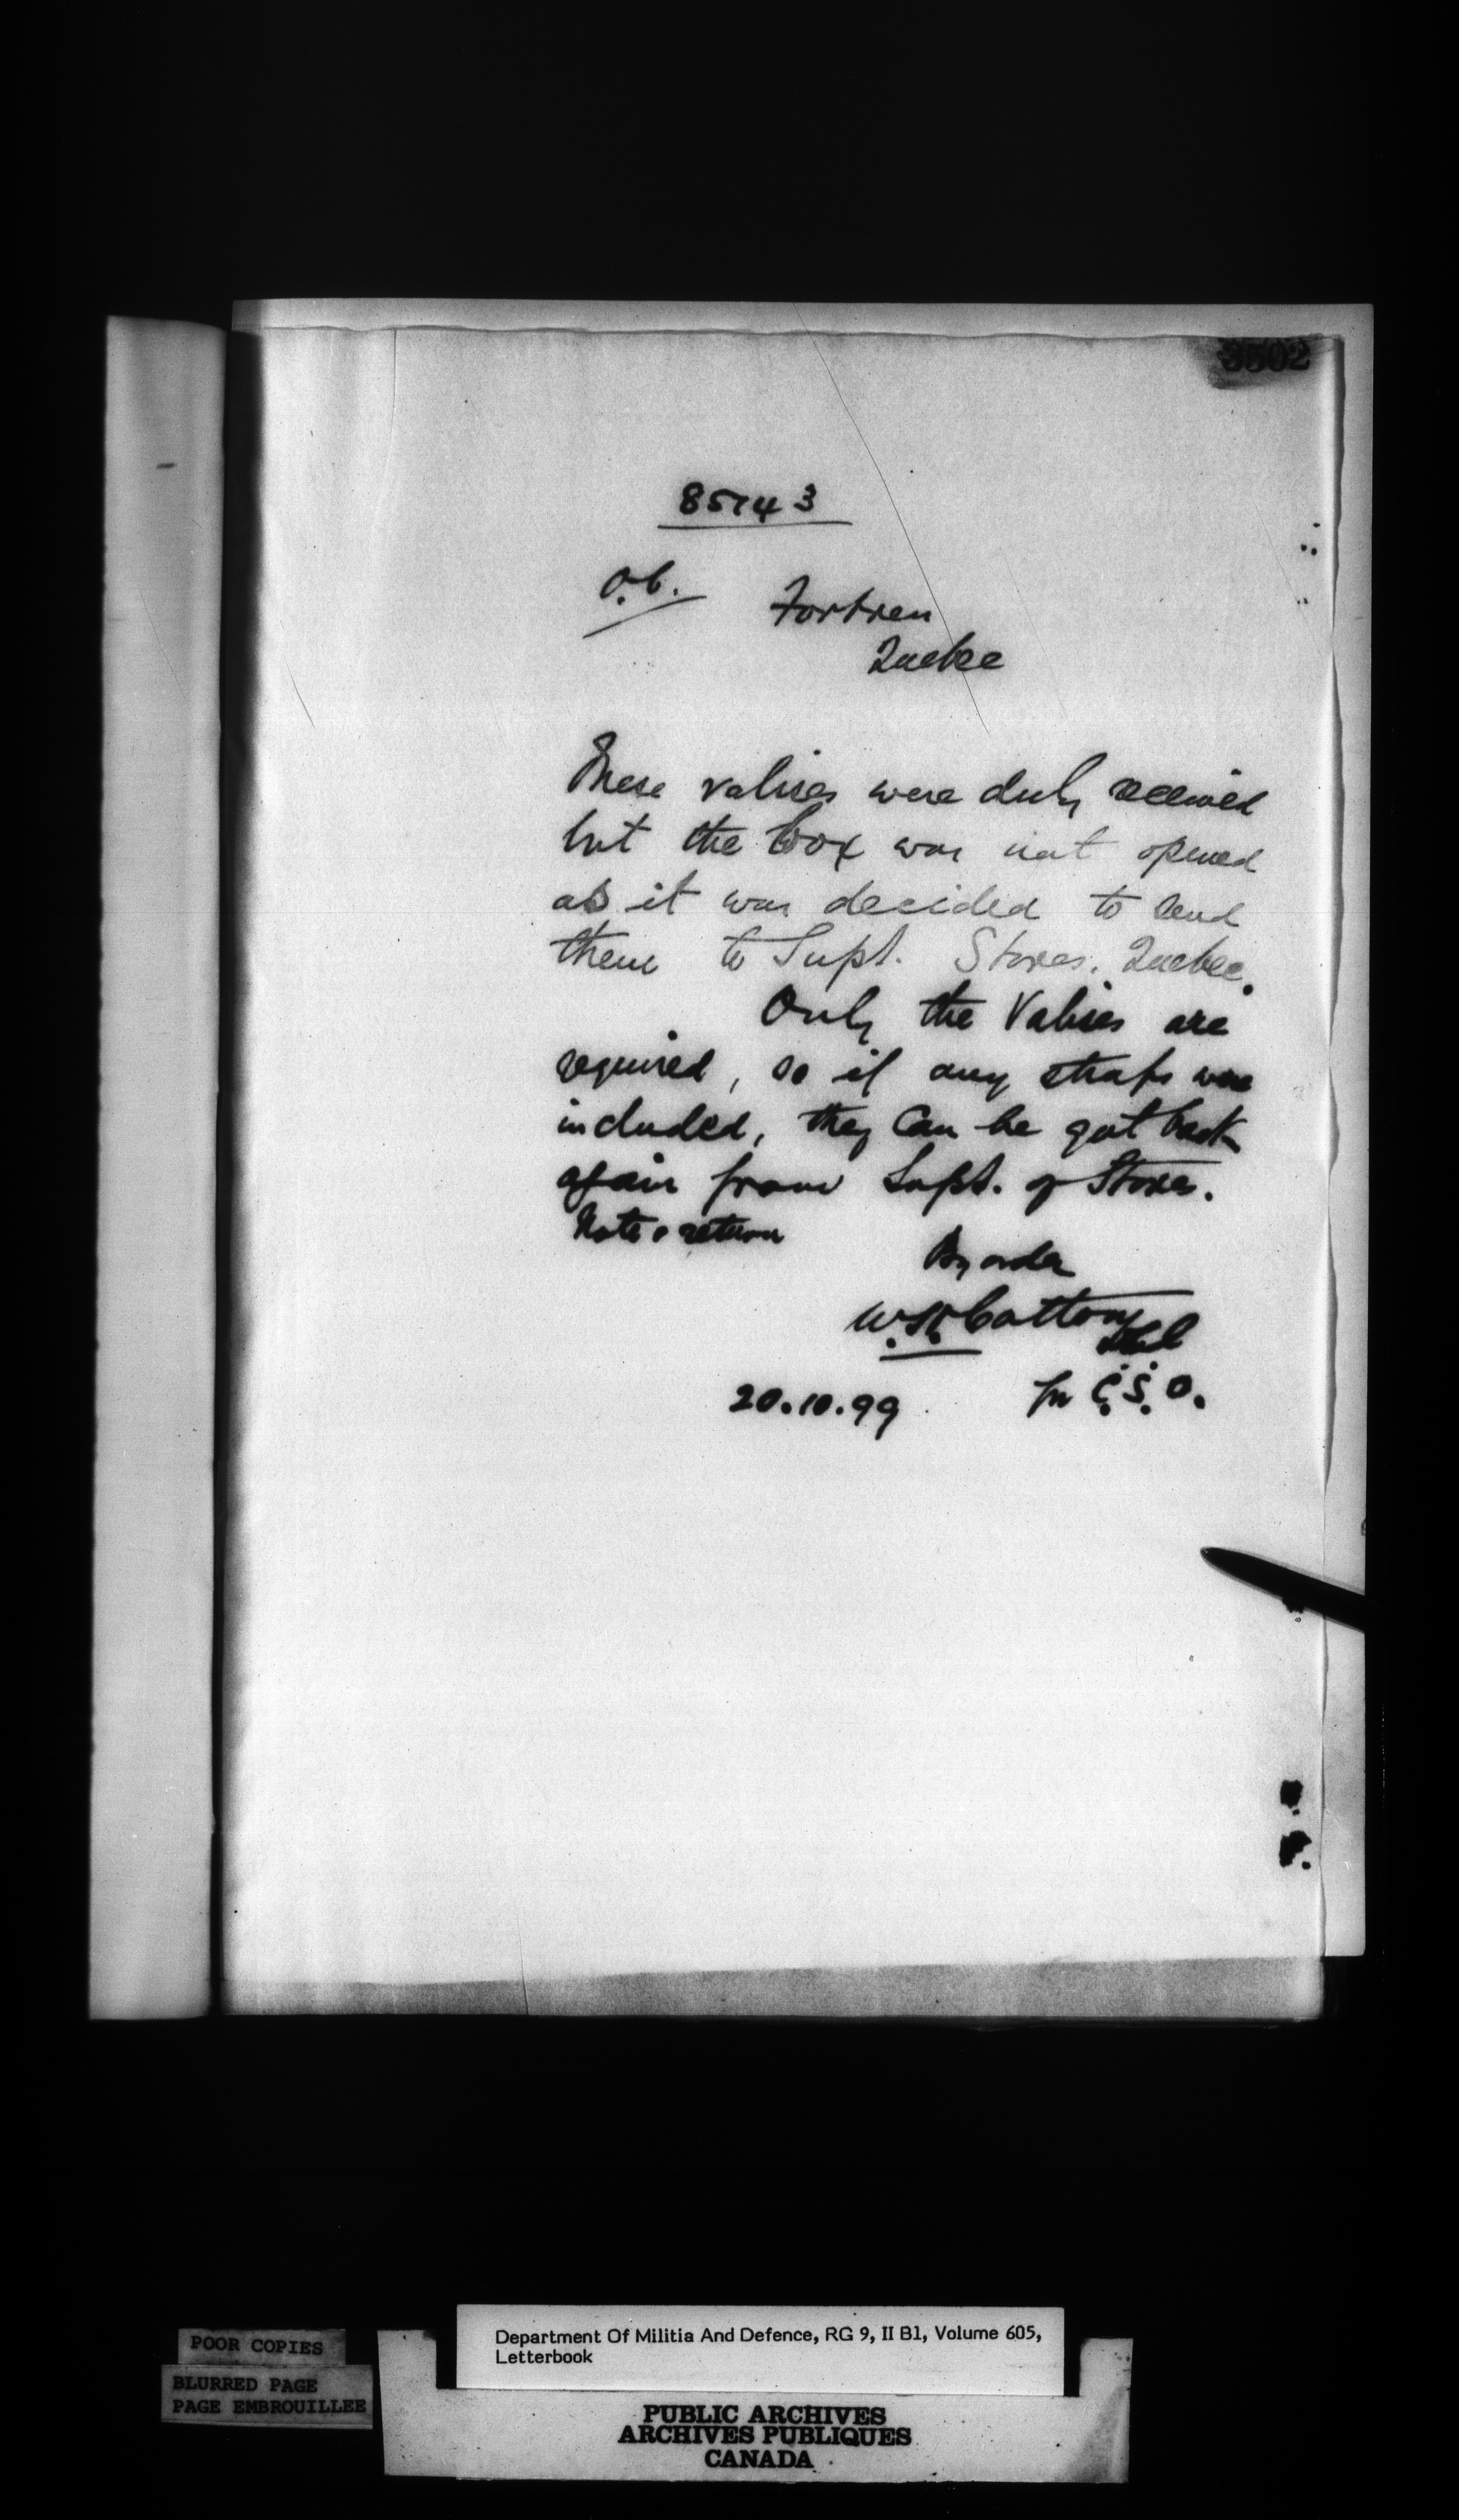 3502
85743
O.C.
Fortress
Quebec
These valises were duly received
but the box was not opened
as it was decided to send
them to Supt. Stores. Quebec.
Only the Valises are
required, so if any straps were
included, they can be got back
again from Supt. of Stores.
Note & return
By order
W.H. Cotton
for C.S.O.
20.10.99
POOR COPIES
BLURRED PAGE
PAGE EMBROUILLEE
Department Of Militia And Defence, RG 9, II B1, Volume 605,
Letterbook
PUBLIC ARCHIVES
ARCHIVES PUBLIQUES
CANADA